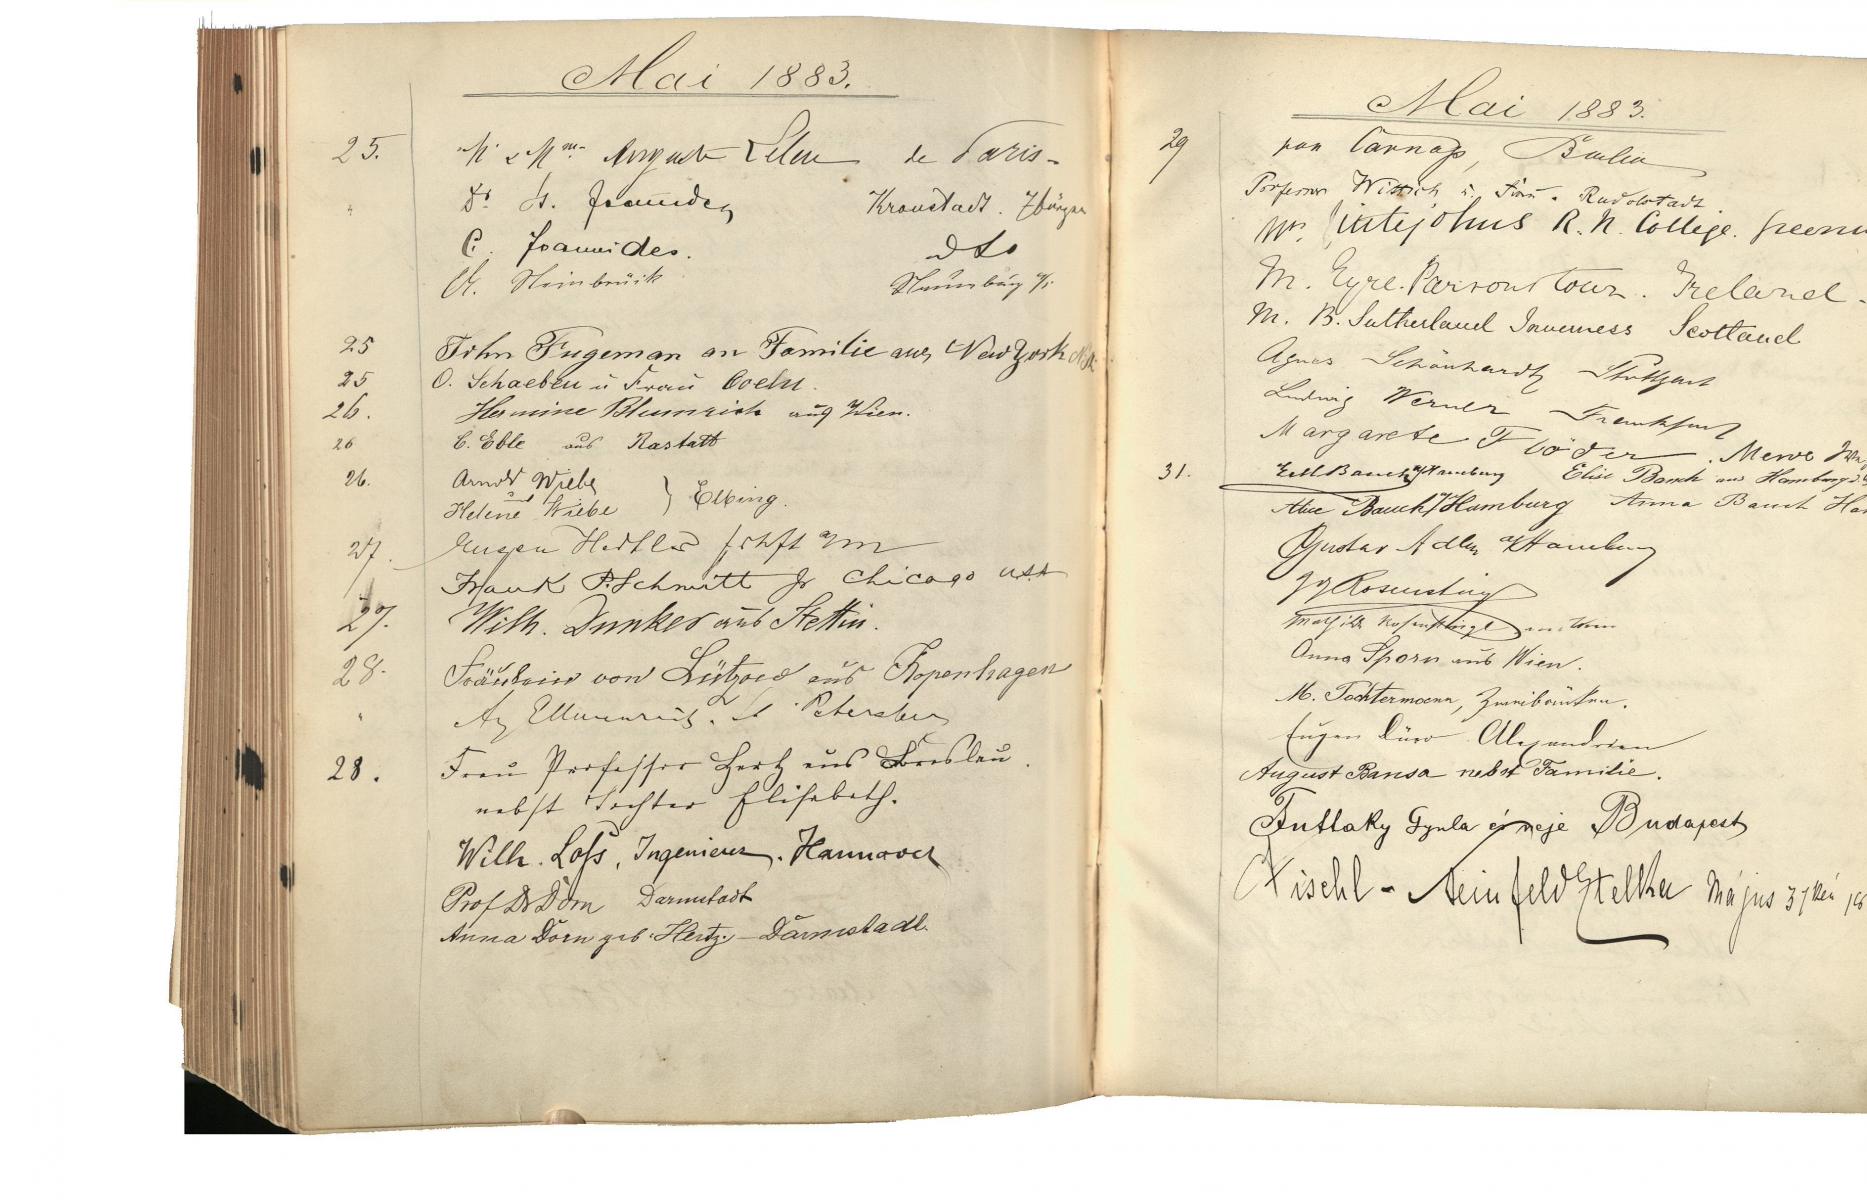 Mai 1883.
25. M & Mme Auguste de Paris
" Dr. Kronstadt.
C. Joannides. dto
Steinbrück
25 John Fugeman an Familie aus New York
25 O. Schaeben u Frau Coeln.
26. Hermine Blumrich aus Wien.
26 C. Eble aus Rastatt
26. Arnold Wiebe
Helene Wiebe } Elbing.
27. Eugen
Frank P. Schmitt Jr Chicago USA
27. Wilh. Dunker aus Stettin.
28. Fräulein von Lützow aus Kopenhagen
" Petersburg
28. Frau Professor Hertz aus Breslau.
nebst Tochter Elisabeth.
Wilh. Loss, Ingenieur. Hannover
Prof Dr Dorn Darmstadt
Anna Dorn geb. Hertz. – Darmstadt.
Mai 1883.
29 von Carnap, Berlin
Professor Wittich u. Frau. Rudolstadt
R. N. College.
M. Eyre. Parsonstown. Ireland -
M. B. Sutherland Inverness Scotland
Agnes Schönhardt Stuttgart
Ludwig Werner Frankfurt
Margarete
31. Bauch a/Hamburg Elise Bauch aus Hamburg
Bauch a/Hamburg Anna Bauch
Gustav Adler a/Hamburg
Rosenstingl
Mathilde Rosenstingl
Anna Sporn aus Wien.
M. Tochtermann, Zweibrücken.
Eugen Alexandrien
August Bansa nebst Familie.
Futtaky Gyula és neje Budapest
Fischl - Steinfeld Etelka Május 31